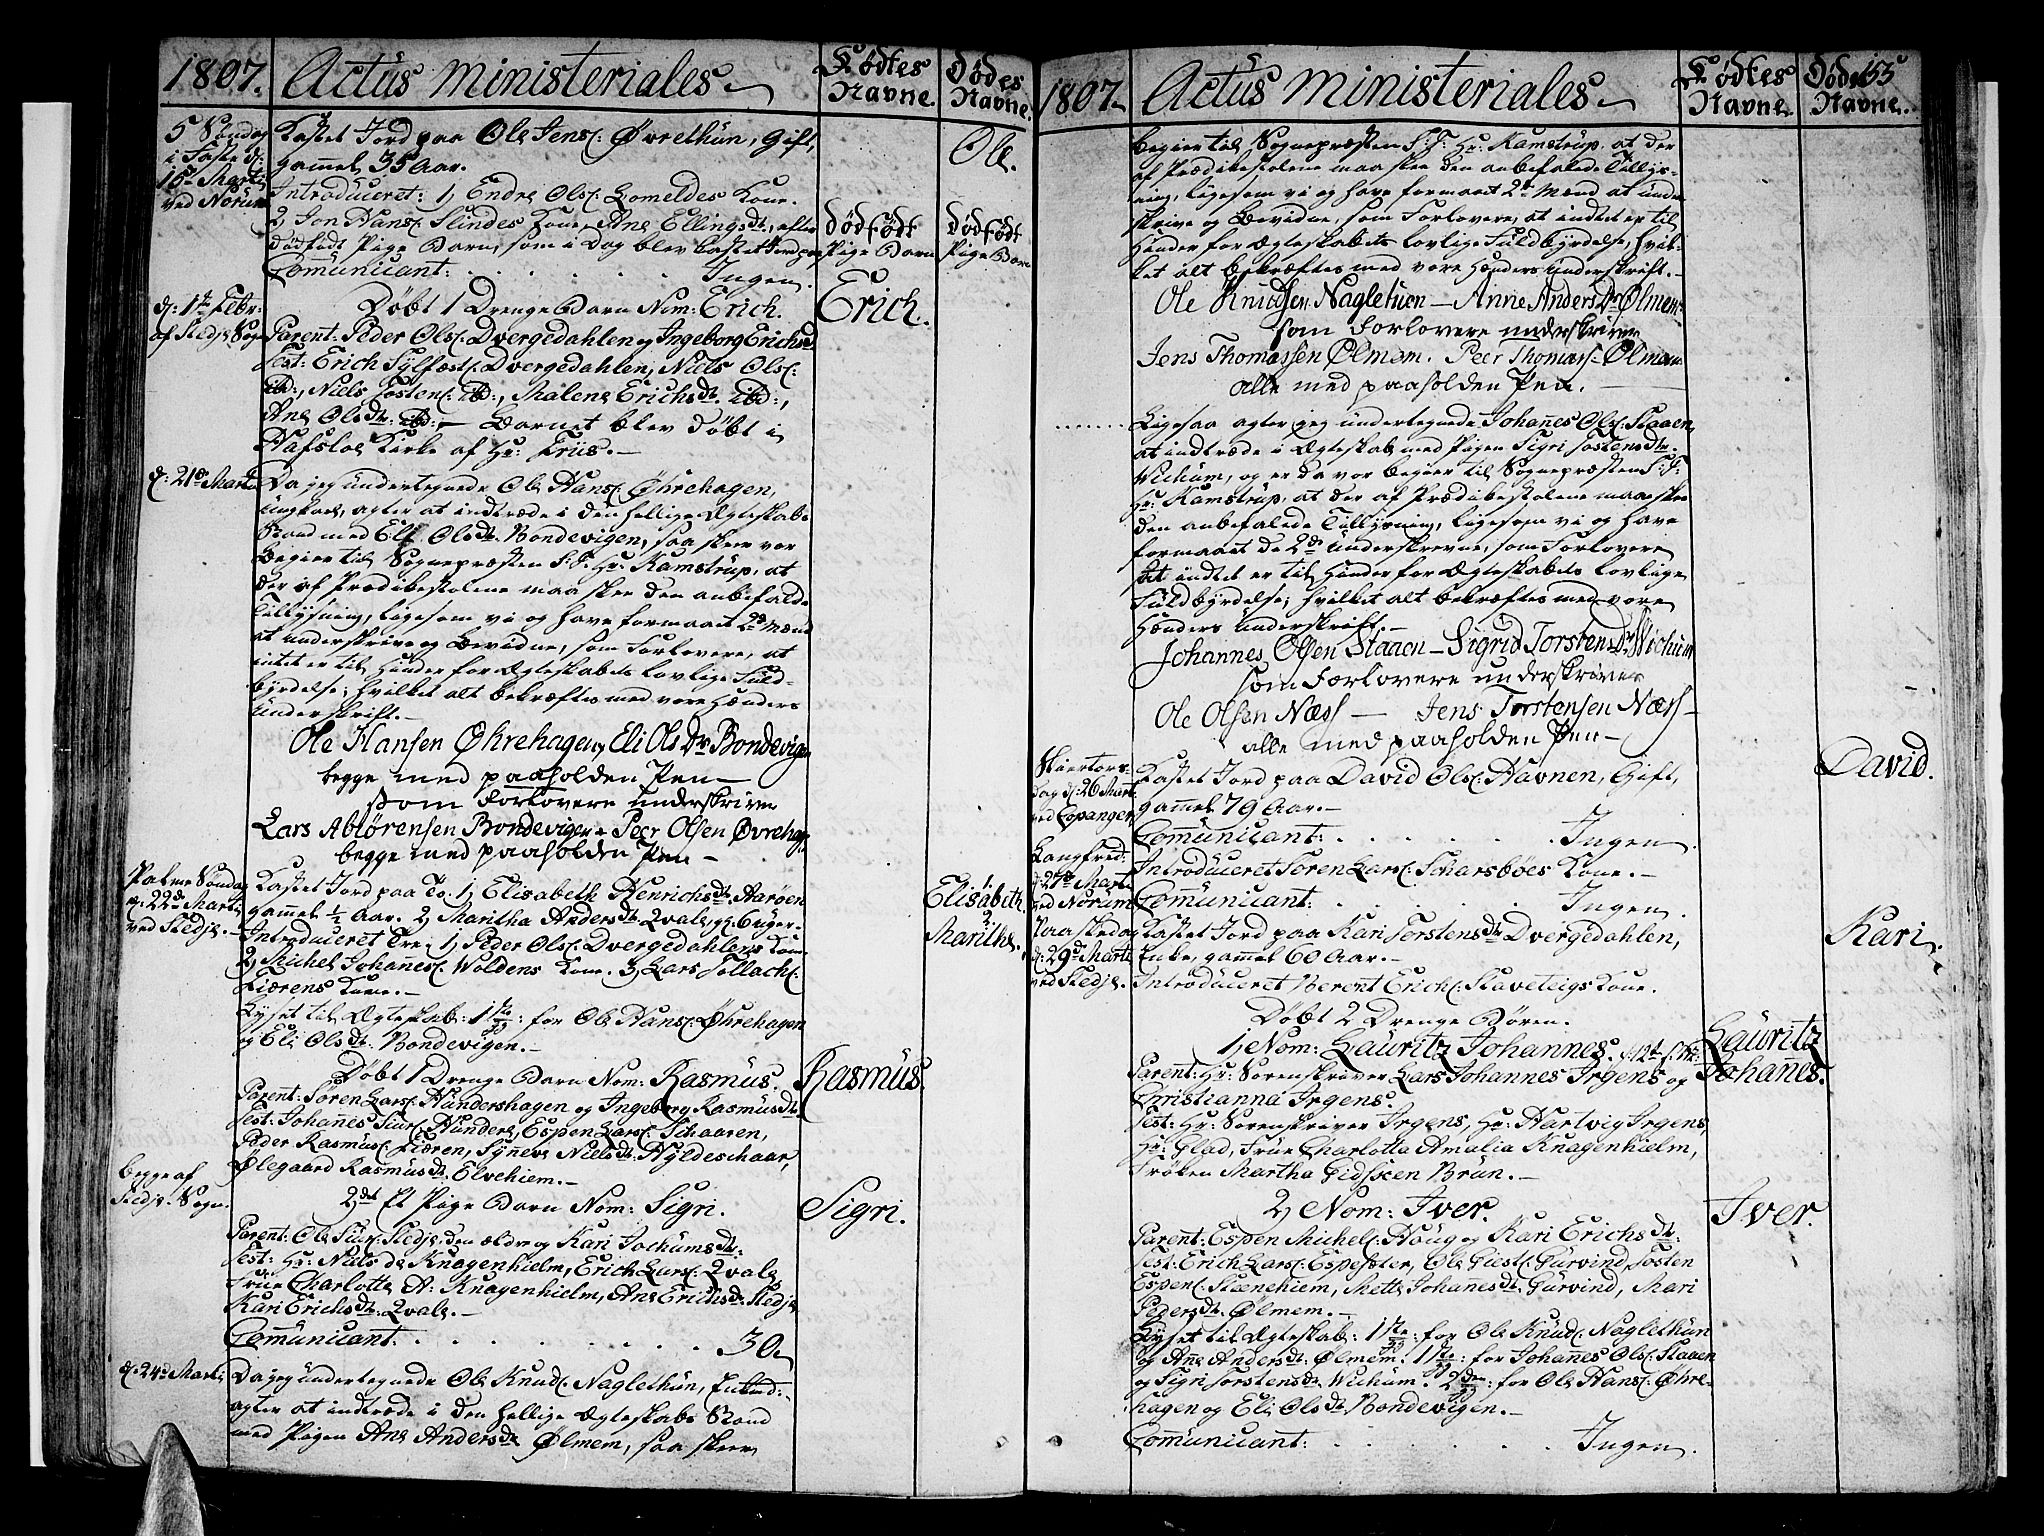 1807. Actus ministeriales Fødtes Navne. Dødes Navne.
5 Søndag i Faste d: 15de Marti ved Norum
Kastet Jord paa Ole Jens: Øvrethun, Gift,
gammel 35 Aar.
Ole.
Introduceret: 1, Endre Ols: Lomeldes Kone.
2, Jon Hans: Slindes Kone, Ane Ellingsdt:, efter
dødfødt Pige Barn, som i Dag blev kastet Jord paa.
dødfødt Pige Barn
dødfødt Pige Barn
Comunicant: . . . . . . Ingen.
d: 1te Febr: af Stedje Sogn
Døbt 1 Drenge Barn Nom: Erich.
Erich.
Parent: Peder Ols: Dvergedahlen og Ingeborg Erichsd
Test: Erich Sylfæst: Dvergedahlen, Niels Ols:
ibd:, Niels Tosten: ibd:, Malene Erichsdt: ibd:,
Ane Olsdt: ibd: – Barnet blev døbt i
Hafsloe Kirke af Hr: Friis. –
d: 21de Marti
Da jeg undertegnede Ole Hans: Øhrehagen,
Ungkarl, agter at indtræde i den hellige Ægteskabs
Stand med Eli Olsdt: Bondevigen, saa skeer vor
Begier til Sognepræsten S: T: Hr: Kamstrup, at
der af Prædikestolene maa skee den anbefalde
Tillysning, ligesom vi og have formaaet 2de Mænd
at underskrive og bevidne, som Forlovere, at
intet er til Hinder for Ægteskabets lovlige Fuld-
byrdelse; hvilket alt bekræftes med vore Hænders
Underskrift. –
Ole Hansen Øhrehagen, Eli Ols Dr Bondevigen
begge med paaholden Pen –
som Forlovere underskriver
Lars Abtørensen Bondevigen – Peer Olsen Øvrehag:
begge med paaholden Pen –
Palme Søndag d: 22de Marti ved Stedje. –
Kastet Jord paa To: 1, Elisabeth Henrichsdt: Aarøen
gammel ½ Aar. 2, Maritha Andersdt: Qvale, gl: 6 Uger –
1. Elisabeth.
2. Maritha.
Introduceret Tre: 1, Peder Ols: Dvergedahlens Kone.
2, Michel Johañes: Woldens Kone. 3, Lars Tollach:
Fiærens Kone. –
Lyset til Ægteskab: 1te g: for Ole Hans: Øhrehagen
og Eli Olsdt: Bondevigen. –
Døbt 1 Drenge Barn Nom: Rasmus.
Rasmus.
Parent: Søren Lars: Hundershagen og Ingeborg Rasmusdt:
Test: Johañes Siur: Hundere, Espen Lars: Schaaren,
Peder Rasmus: Fiæren, Synneve Nielsdt: Hyldeschaar,
Ølegaard Rasmusdt: Elvehiem. –
begge af Stedje Sogn.
2det Et Pige Barn Nom: Sigri.
Sigri.
Parent: Ole Siur: Stedje den ældre og Kari Jochumsdt:
Test: Hr: Niels de Knagenhielm, Erich Lars: Qvale
Frue Charlotte A: Knagenhielm, Ane Erichsdt: Stedje
Kari Erichsdt: Qvale. –
Comunicant: . . . . . . . . 30.
d: 24de Marti
Da jeg undertegnede Ole Knud: Naglethun, Enkmd:
agter at indtræde i den hellige Ægteskabs Stand
med Pigen Ane Andersdt: Ølmem, saa skeer
1807. Actus ministeriales Fødtes Navne. Døde Navne. 153
begier til Sognepræsten S: T: Hr: Kamstrup, at der
af Prædikestolene maa skee den anbefalede Tillys-
ning, ligesom vi og have formaaet 2de Mænd at under-
skrive og bevidne, som Forlovere, at indtet er til
Hinder for Ægteskabets lovlige Fuldbyrdelse, hvil-
ket alt bekræftes med vore Hænders Underskrift. –
Ole Knudsen Nagletuen – Anne Anders Dr Ølmem
som Forlovere underskriver
Jens Thomassen Ølmem. Peer Thomas: Ølmem
alle med paaholden Pen. –
Ligesaa agter jeg undertegnede Johañes Ols: Staaen,
at indtræde i Ægteskab med Pigen Sigri Tostensdtr:
Wichum, og er da vor begier til Sognepræsten S: T:
Hr: Kamstrup, at der af Prædikestolene maa skee
den anbefalede Tillysning, ligesom vi og have
formaaet de 2de Underskrevne, som Forlovere
at indtet er til Hinder for Ægteskabets lovlige
Fuldbyrdelse; hvilket alt bekræftes med vore
Hænders Underskrift. –
Johannes Olsen Staaen – Sigrid Torstens Dr Wichum
som Forlovere underskriver
Ole Olsen Næss – Jens Torstensen Næss –
alle med paaholden Pen –
Skiertorsdag d: 26 Mart: ved Copanger
Kastet Jord paa David Ols: Havnen, Gift,
gammel 79 Aar. –
David.
Comunicant: . . . . . Ingen.
Langfred: d: 27de Marti ved Norum
Introduceret Søren Lars: Scharsbøes Kone. –
Comunicant: . . . . . Ingen.
Paaskedag d: 29de Marti ved Stedje.
Kastet Jord paa Kari Torstensdtr Dvergedahlen,
Enke, gammel 60 Aar. –
Kari.
Introduceret Berent Erich: Staveteigs Kone.
Døbt 2 Drenge Børn.
1, Nom: Lauritz Johannes.
Lauritz Johañes.
Parent: Hr: Sorenskriver Lars Johannes Irgens og
Christianna Irgens.
Test: Hr: Sorenskriver Irgens, Hr: Hartvig Irgens,
Hr: Glad, Frue Charlotta Amalia Knagenhielm,
Frøken Martha Gidsken Brun. –
2, Nom: Iver.
Iver.
Parent: Espen Michel: Houg og Kari Erichsdt:
Test: Erich Lars: Espesæter, Ole Giest: Gurvind, Tosten
Espen: Steenehiem, Mette Johanesdt: Gurvind, Mari
Pedersdt: Ølmem. –
Lyset til Ægteskab: 1te g: for Ole Knud: Naglethun
og Añe Andersdt: Ølmem. 1te g: for Johañes Ols: Staaen
og Sigri Torstensdt: Wichum. 2den g: for Ole Hans: Øhre-
hagen og Eli Olsdt: Bondevigen. –
Comunicant: . . . . . Ingen.